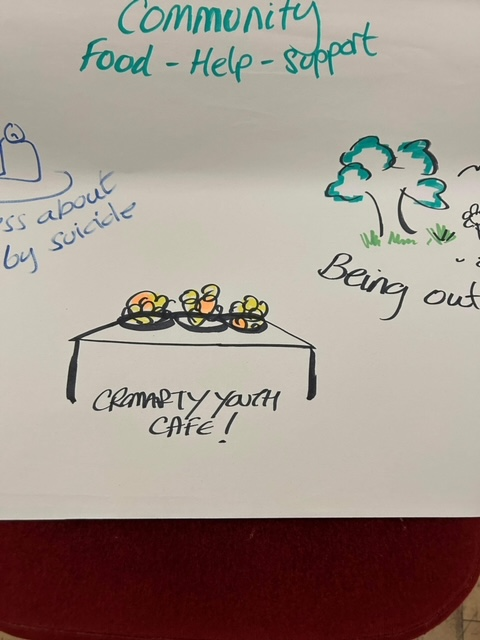 Community
Food - Help - Support
ss about
by suicide
Being out
CROMARTY YOUTH
CAFE!